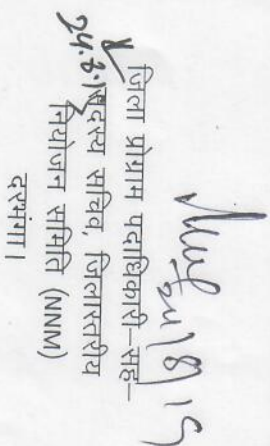 24/8/19
24.8.19
जिला प्रोग्राम पदाधिकारी–सह–
सदस्य सचिव, जिलास्तरीय
नियोजन समिति (NNM)
दरभंगा।